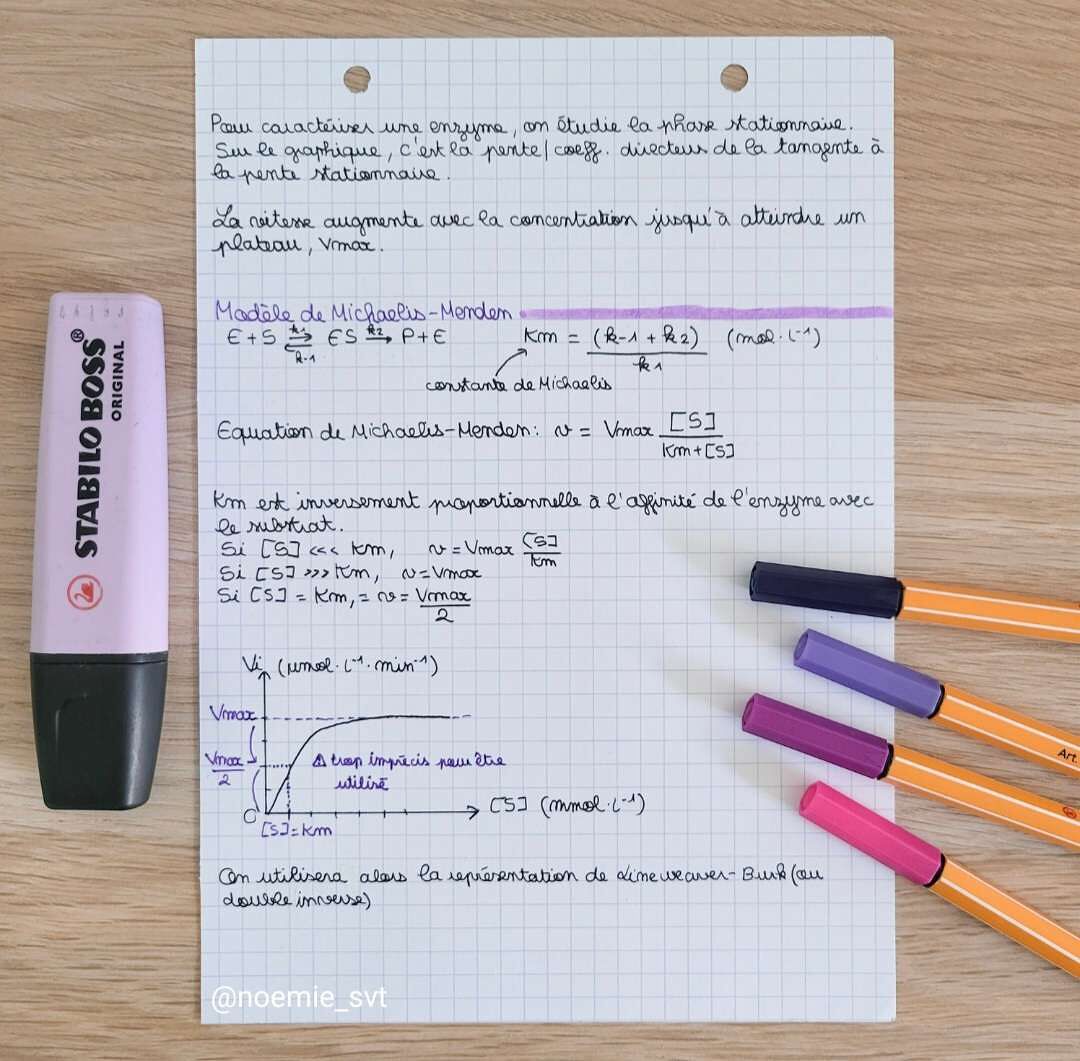 Pour caractériser une enzyme, on étudie la phase stationnaire.
Sur le graphique, c'est la pente/coeff. directeur de la tangente à
la pente stationnaire.
La vitesse augmente avec la concentration jusqu'à atteindre un
plateau, Vmax.
Modèle de Michaelis-Menden
E+S ⇌ ES → P+E
k1
k-1
k2
Km = (k-1 + k2) / k1 (mol·L⁻¹)
constante de Michaelis
Equation de Michaelis-Menden: v = Vmax [S] / Km+[S]
Km est inversement proportionnelle à l'affinité de l'enzyme avec
le substrat.
Si [S] <<< Km, v = Vmax [S] / Km
Si [S] >>> Km, v = Vmax
Si [S] = Km, = v = Vmax / 2
Vi (µmol·L⁻¹·min⁻¹)
Vmax
Vmax / 2
⚠ trop imprécis pour être
utilisé
0
[S] = Km
[S] (mmol·L⁻¹)
On utilisera alors la représentation de Lineweaver-Burk (ou
double inverse)
@noemie_svt
STABILO BOSS®
ORIGINAL
Art.